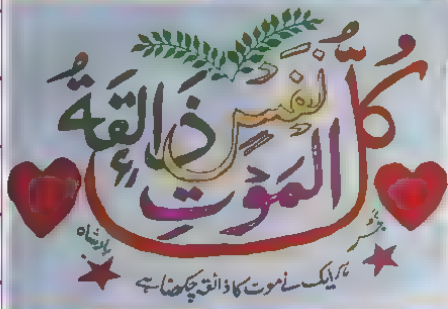 كُلُّ نَفْسٍ ذَائِقَةُ
الْمَوْتِ
ہر ایک نے موت کا ذائقہ چکھنا ہے